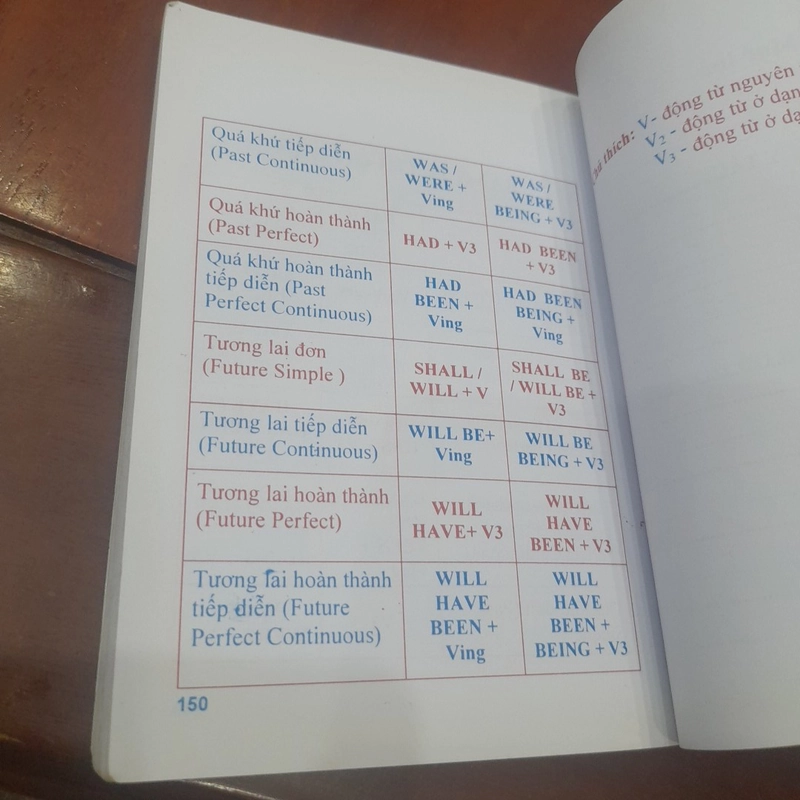 Quá khứ tiếp diễn
(Past Continuous)
WAS /
WERE +
Ving
WAS /
WERE
BEING + V3
Quá khứ hoàn thành
(Past Perfect)
HAD + V3
HAD BEEN
+ V3
Quá khứ hoàn thành
tiếp diễn (Past
Perfect Continuous)
HAD
BEEN +
Ving
HAD BEEN
BEING +
Ving
Tương lai đơn
(Future Simple )
SHALL /
WILL + V
SHALL BE
/ WILL BE +
V3
Tương lai tiếp diễn
(Future Continuous)
WILL BE+
Ving
WILL BE
BEING + V3
Tương lai hoàn thành
(Future Perfect)
WILL
HAVE+ V3
WILL
HAVE
BEEN + V3
Tương lai hoàn thành
tiếp diễn (Future
Perfect Continuous)
WILL
HAVE
BEEN +
Ving
WILL
HAVE
BEEN +
BEING + V3
150
thích: V- động từ nguyên
V2 - động từ ở dạn
V3 - động từ ở dạ